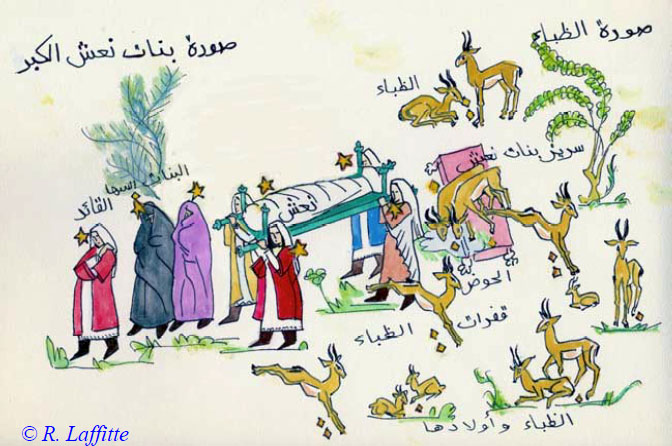 صورة الظباء
صورة بنات نعش الكبر
الظباء
سرير بنات نعش
البنات
اسبها
القائد
نعش
الحوض
قفزات الظباء
الظباء وأولادها
© R. Laffitte